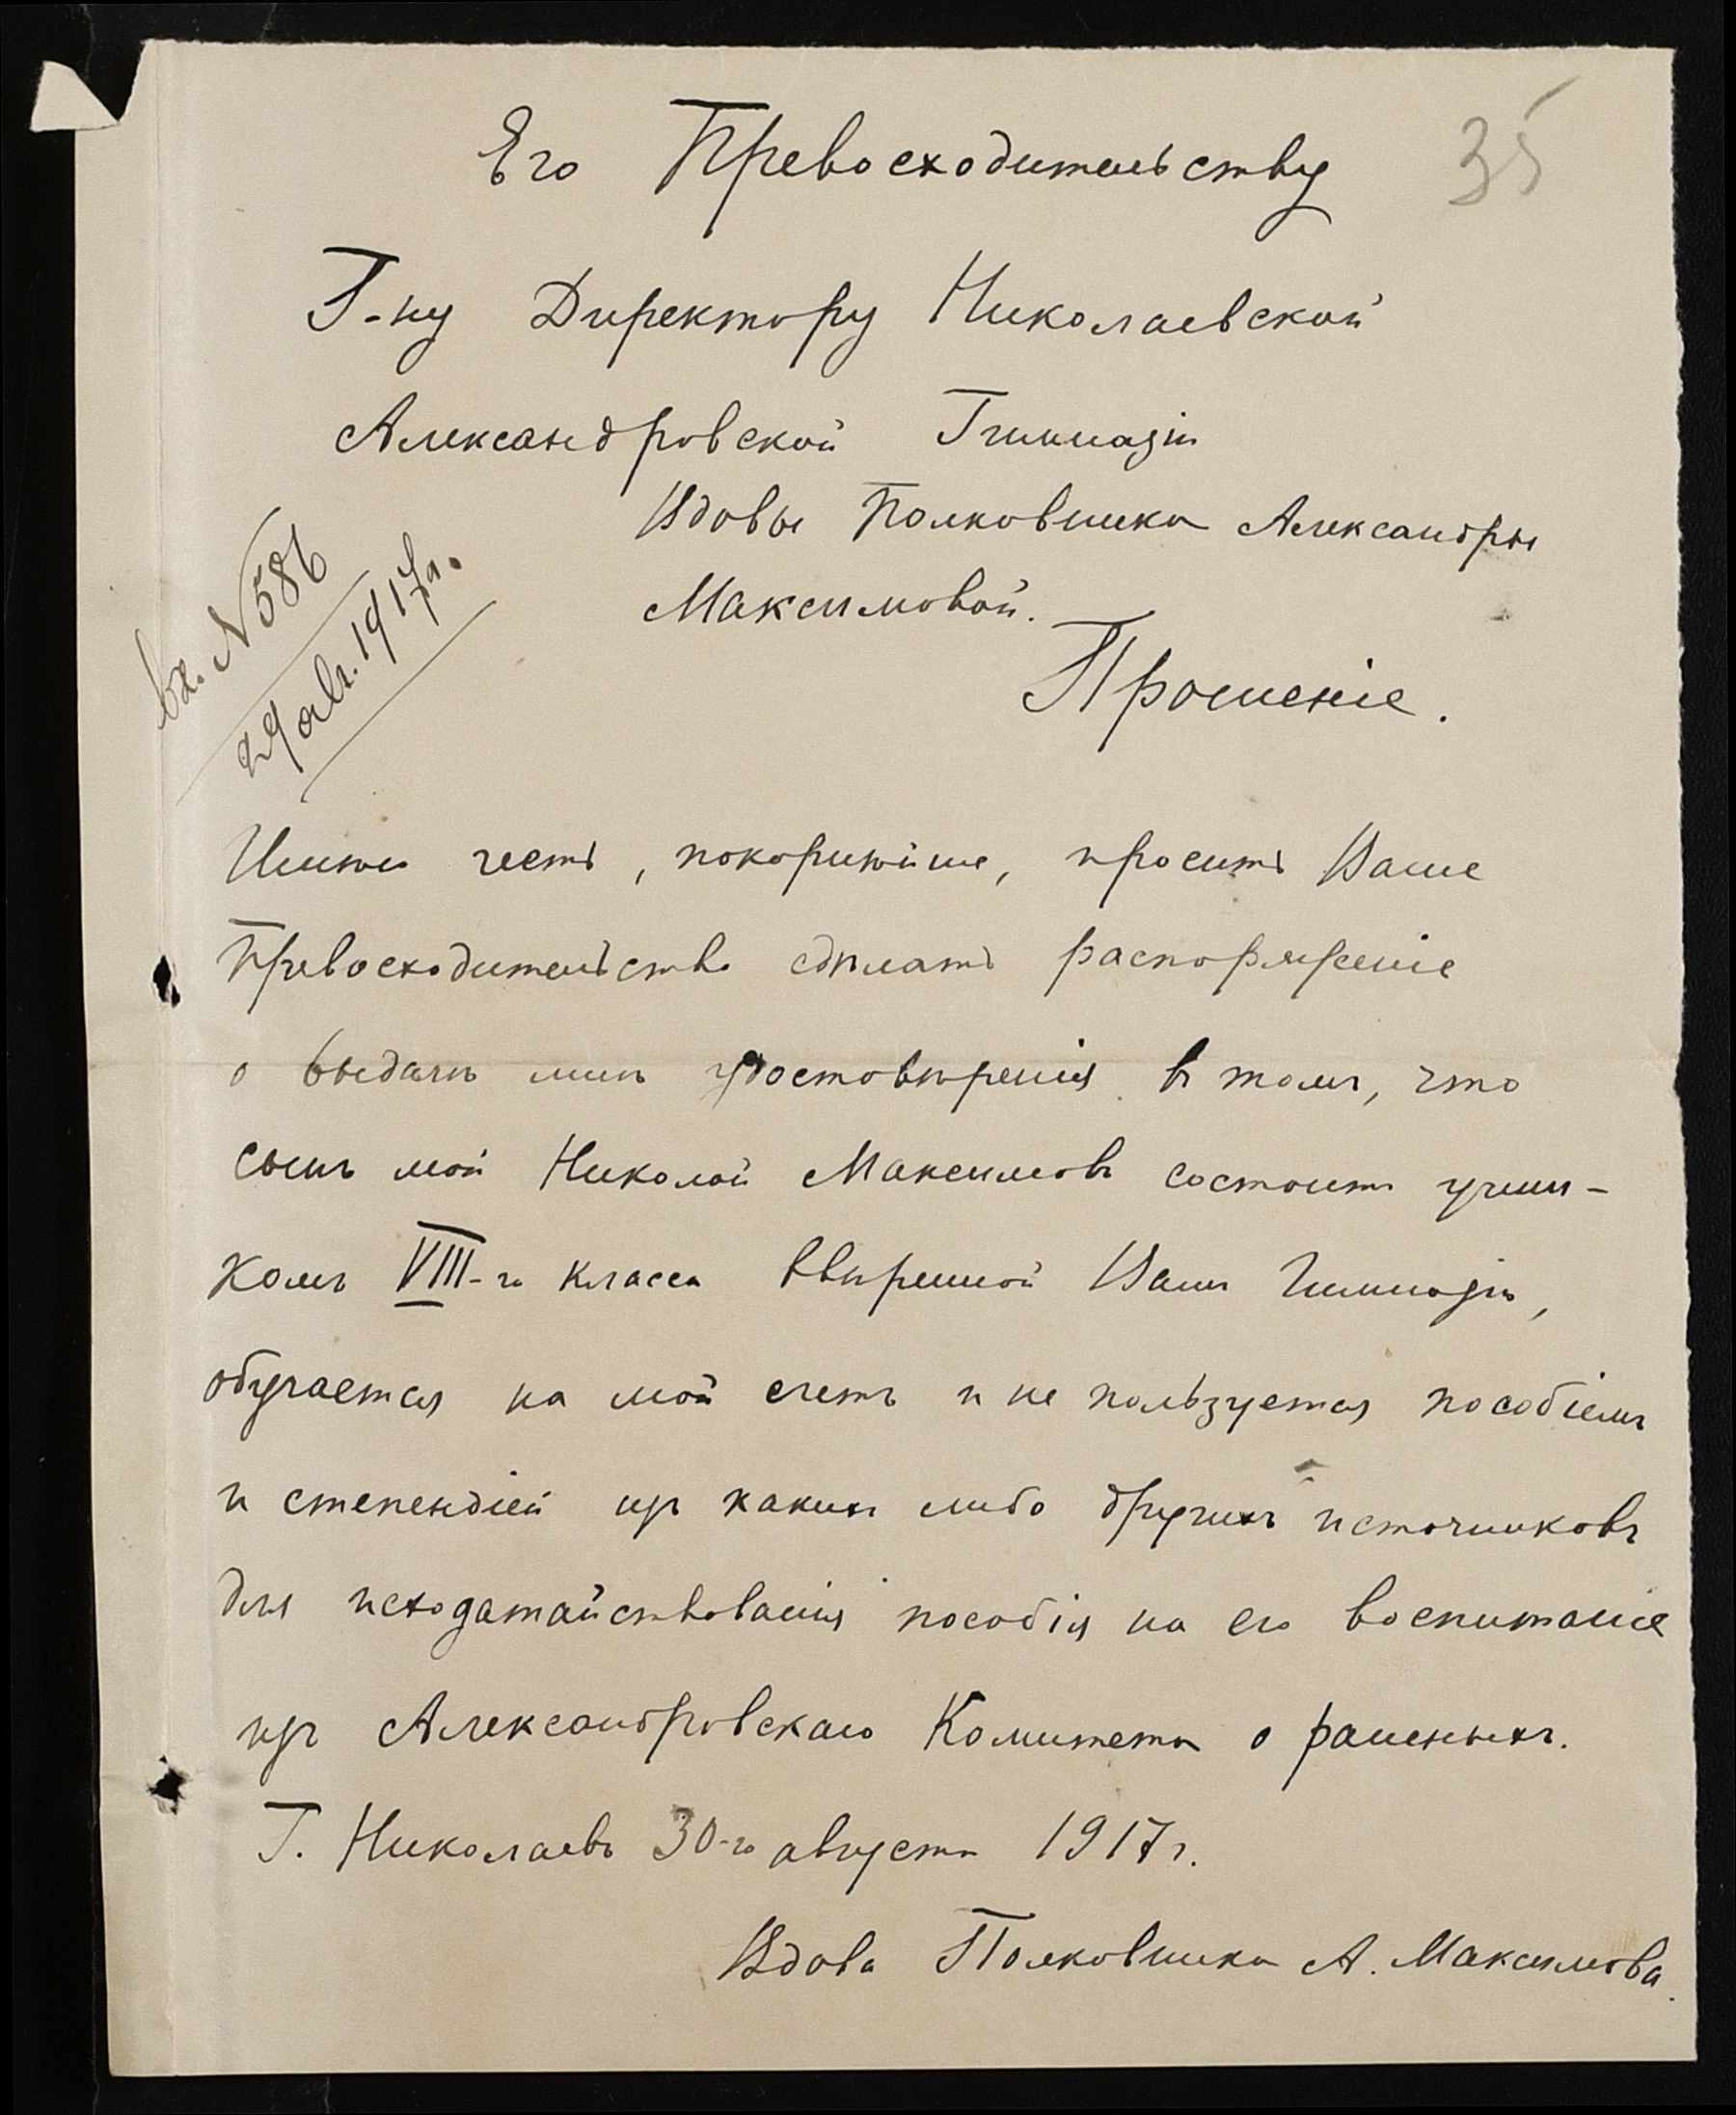 35
Его Превосходительству
Г-ну Директору Николаевской
Александровской Гимназіи
Вдовы Полковника Александры
Максимовой.
вх. № 586
29 авг. 1917 г.
Прошеніе.
Имѣю честь, покорнѣйше, просить Ваше
Превосходительство сдѣлать распоряженіе
о выдачѣ мнѣ удостовѣренія въ томъ, что
сынъ мой Николай Максимовъ состоитъ учени-
комъ VIII-го класса ввѣренной Вамъ Гимназіи,
обучается на мой счетъ и не пользуется пособіемъ
и степендіей изъ какихъ либо другихъ источниковъ
для исходатайствованія пособія на его воспитаніе
изъ Александровскаго Комитета о раненыхъ.
Г. Николаевъ 30-го августа 1917 г.
Вдова Полковника А. Максимова.